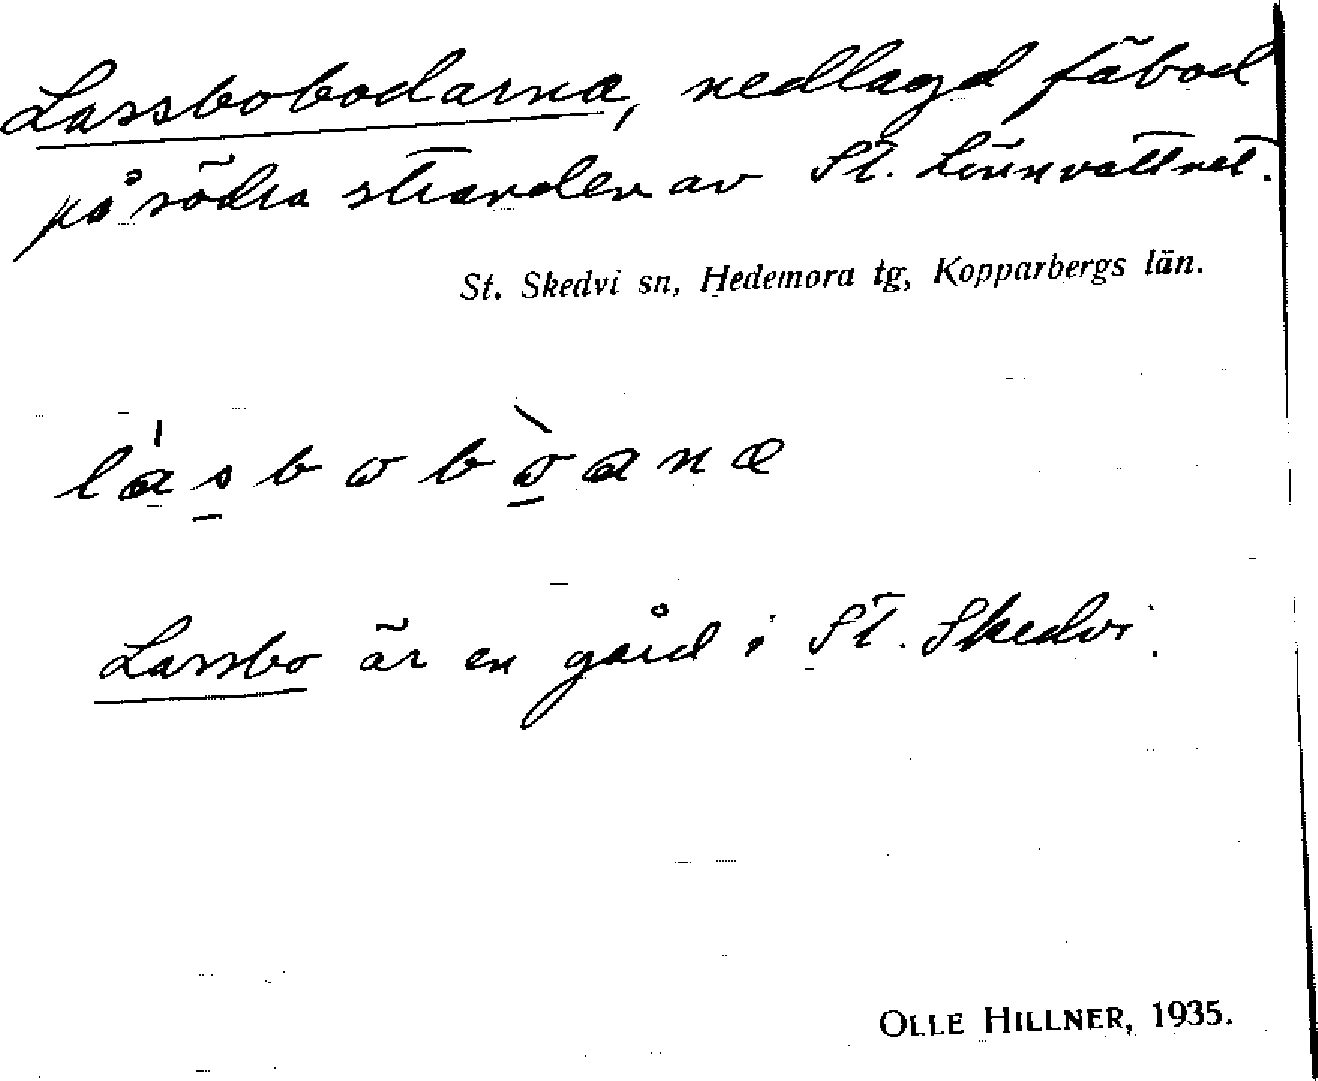 Lassbobodarna, nedlagd fäbod
på södra stranden av St.
St. Skedvi sn, Hedemora tg, Kopparbergs län.
låsbobòanæ
Lassbo är en gård i St. Skedvi.
OLLE HILLNER, 1935.